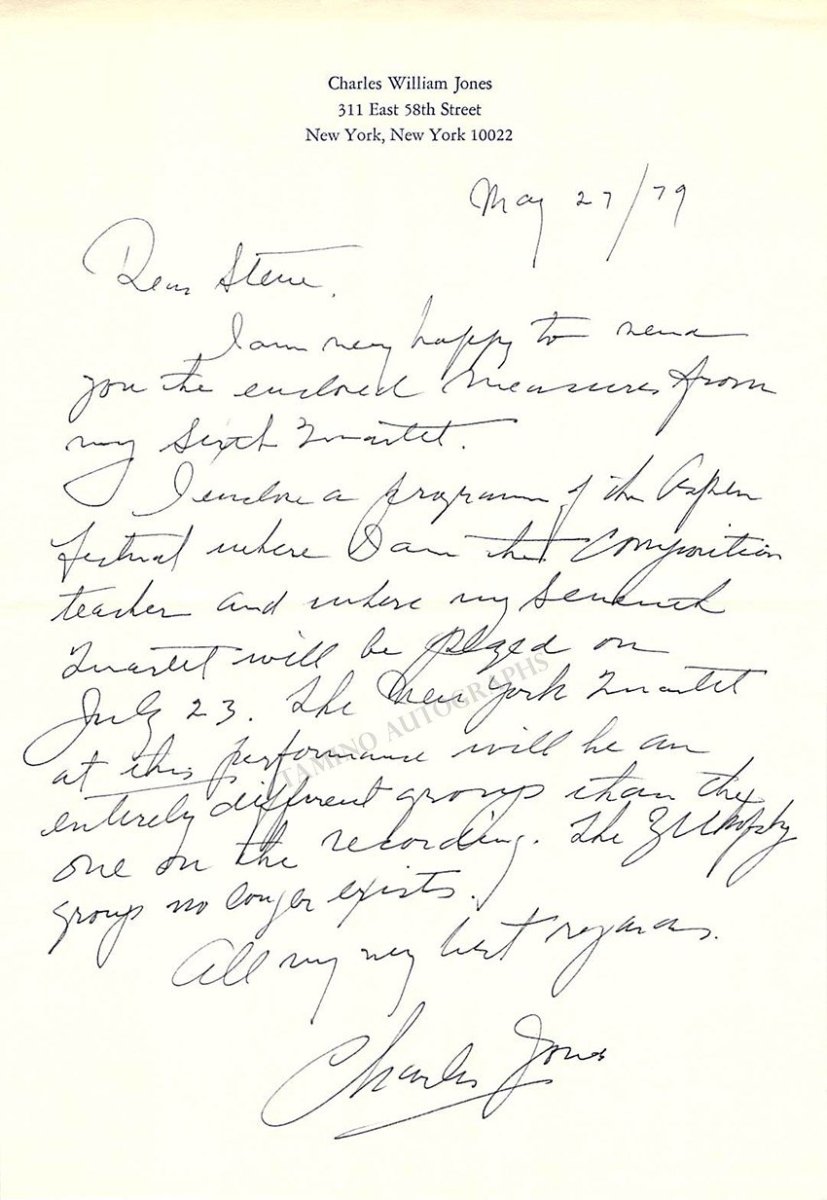 Charles William Jones
311 East 58th Street
New York, New York 10022
May 27/79
Dear Steve,
I am very happy to send
you the enclosed measures from
my Sixth Quartet.
I enclose a program of the Aspen
Festival where I am the composition
teacher and where my Seventh
Quartet will be played on
July 23. The New York Quartet
at this performance will be an
entirely different group than the
one on the recording. The
group no longer exists.
All my very best regards.
Charles Jones
TAMINO AUTOGRAPHS